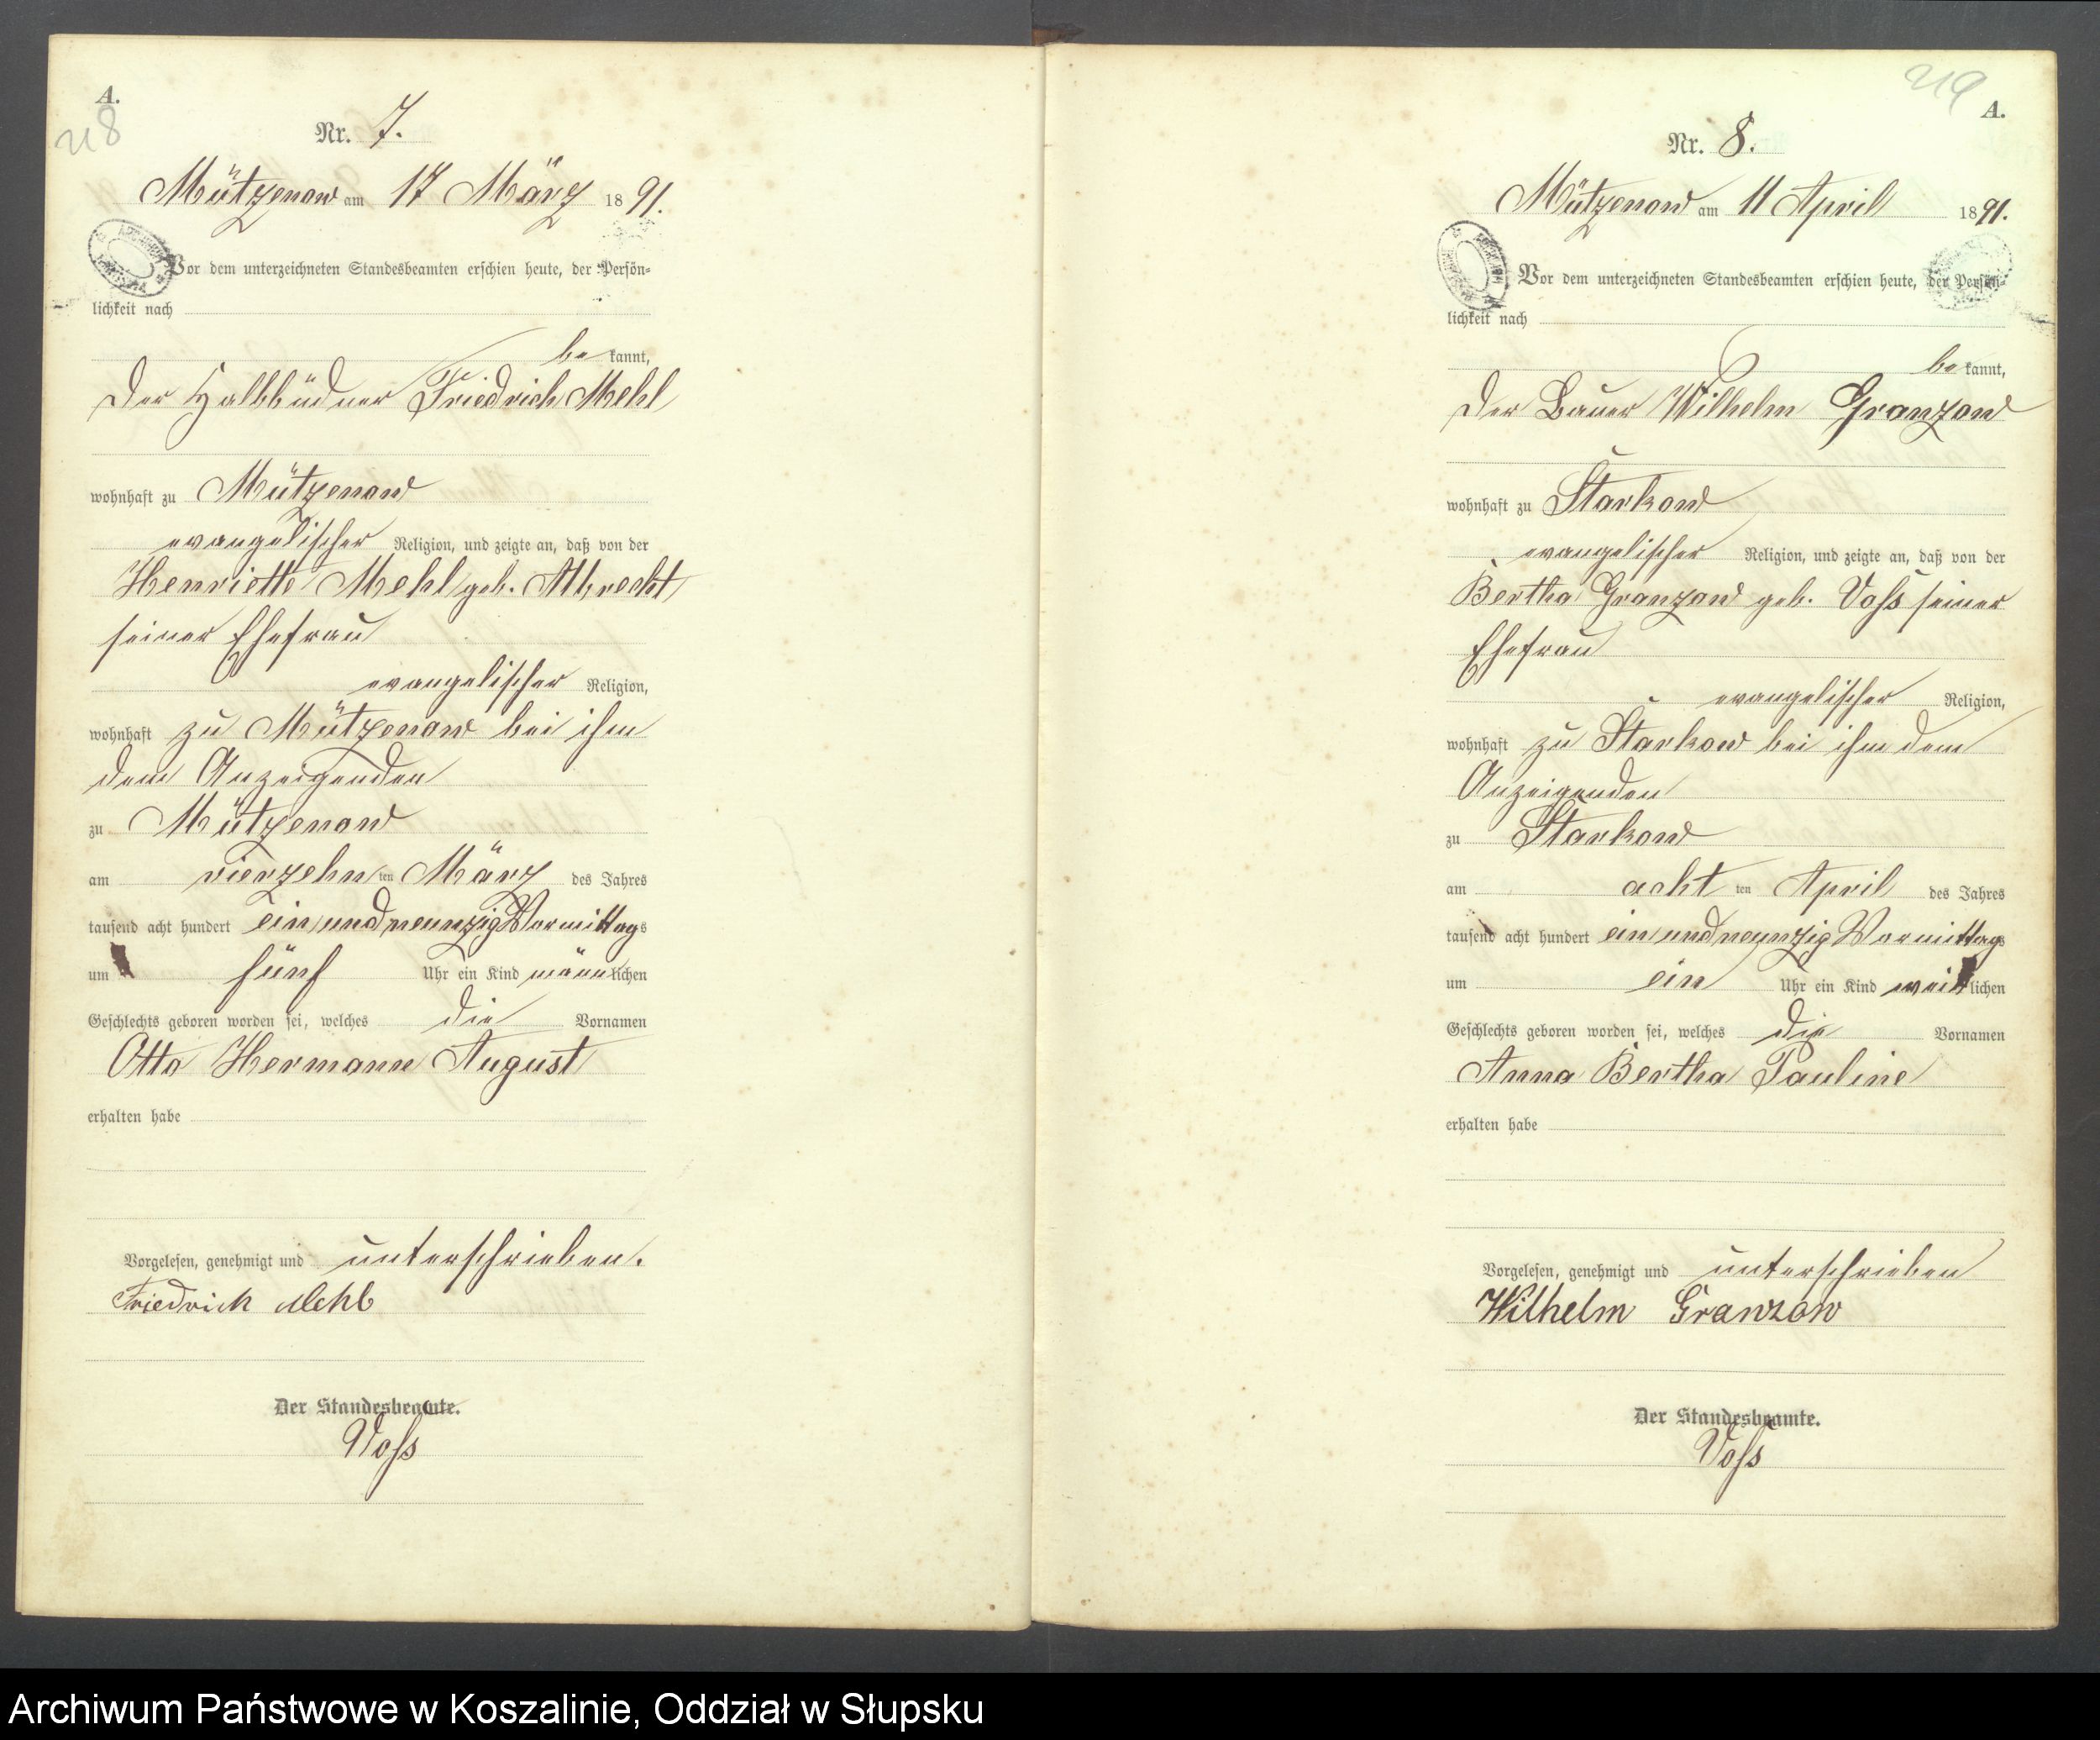 A.
218
Nr. 7.
Mützenow am 17 März 1891.
Vor dem unterzeichneten Standesbeamten erschien heute, der Persön-
lichkeit nach
be kannt,
der Halbbüdner Friedrich Mehl
wohnhaft zu Mützenow
evangelischer Religion, und zeigte an, daß von der
Henriette Mehl geb. Albrecht
seiner Ehefrau
evangelischer Religion,
wohnhaft zu Mützenow bei ihm
dem Anzeigenden
zu Mützenow
am vierzehn ten März des Jahres
tausend acht hundert ein und neunzig Vormittags
um fünf Uhr ein Kind männlichen
Geschlechts geboren worden sei, welches die Vornamen
Otto Hermann August
erhalten habe
Vorgelesen, genehmigt und unterschrieben.
Friedrich Mehl
Der Standesbeamte.
Voß
219
A.
Nr. 8.
Mützenow am 11 April 1891.
Vor dem unterzeichneten Standesbeamten erschien heute, der Persön-
lichkeit nach
be kannt,
der Bauer Wilhelm Granzow
wohnhaft zu Starkow
evangelischer Religion, und zeigte an, daß von der
Bertha Granzow geb. Voß seiner
Ehefrau
evangelischer Religion,
wohnhaft zu Starkow bei ihm dem
Anzeigenden
zu Starkow
am acht ten April des Jahres
tausend acht hundert ein und neunzig Vormittags
um ein Uhr ein Kind weiblichen
Geschlechts geboren worden sei, welches die Vornamen
Anna Bertha Pauline
erhalten habe
Vorgelesen, genehmigt und unterschrieben
Wilhelm Granzow
Der Standesbeamte.
Voß
Archiwum Państwowe w Koszalinie, Oddział w Słupsku